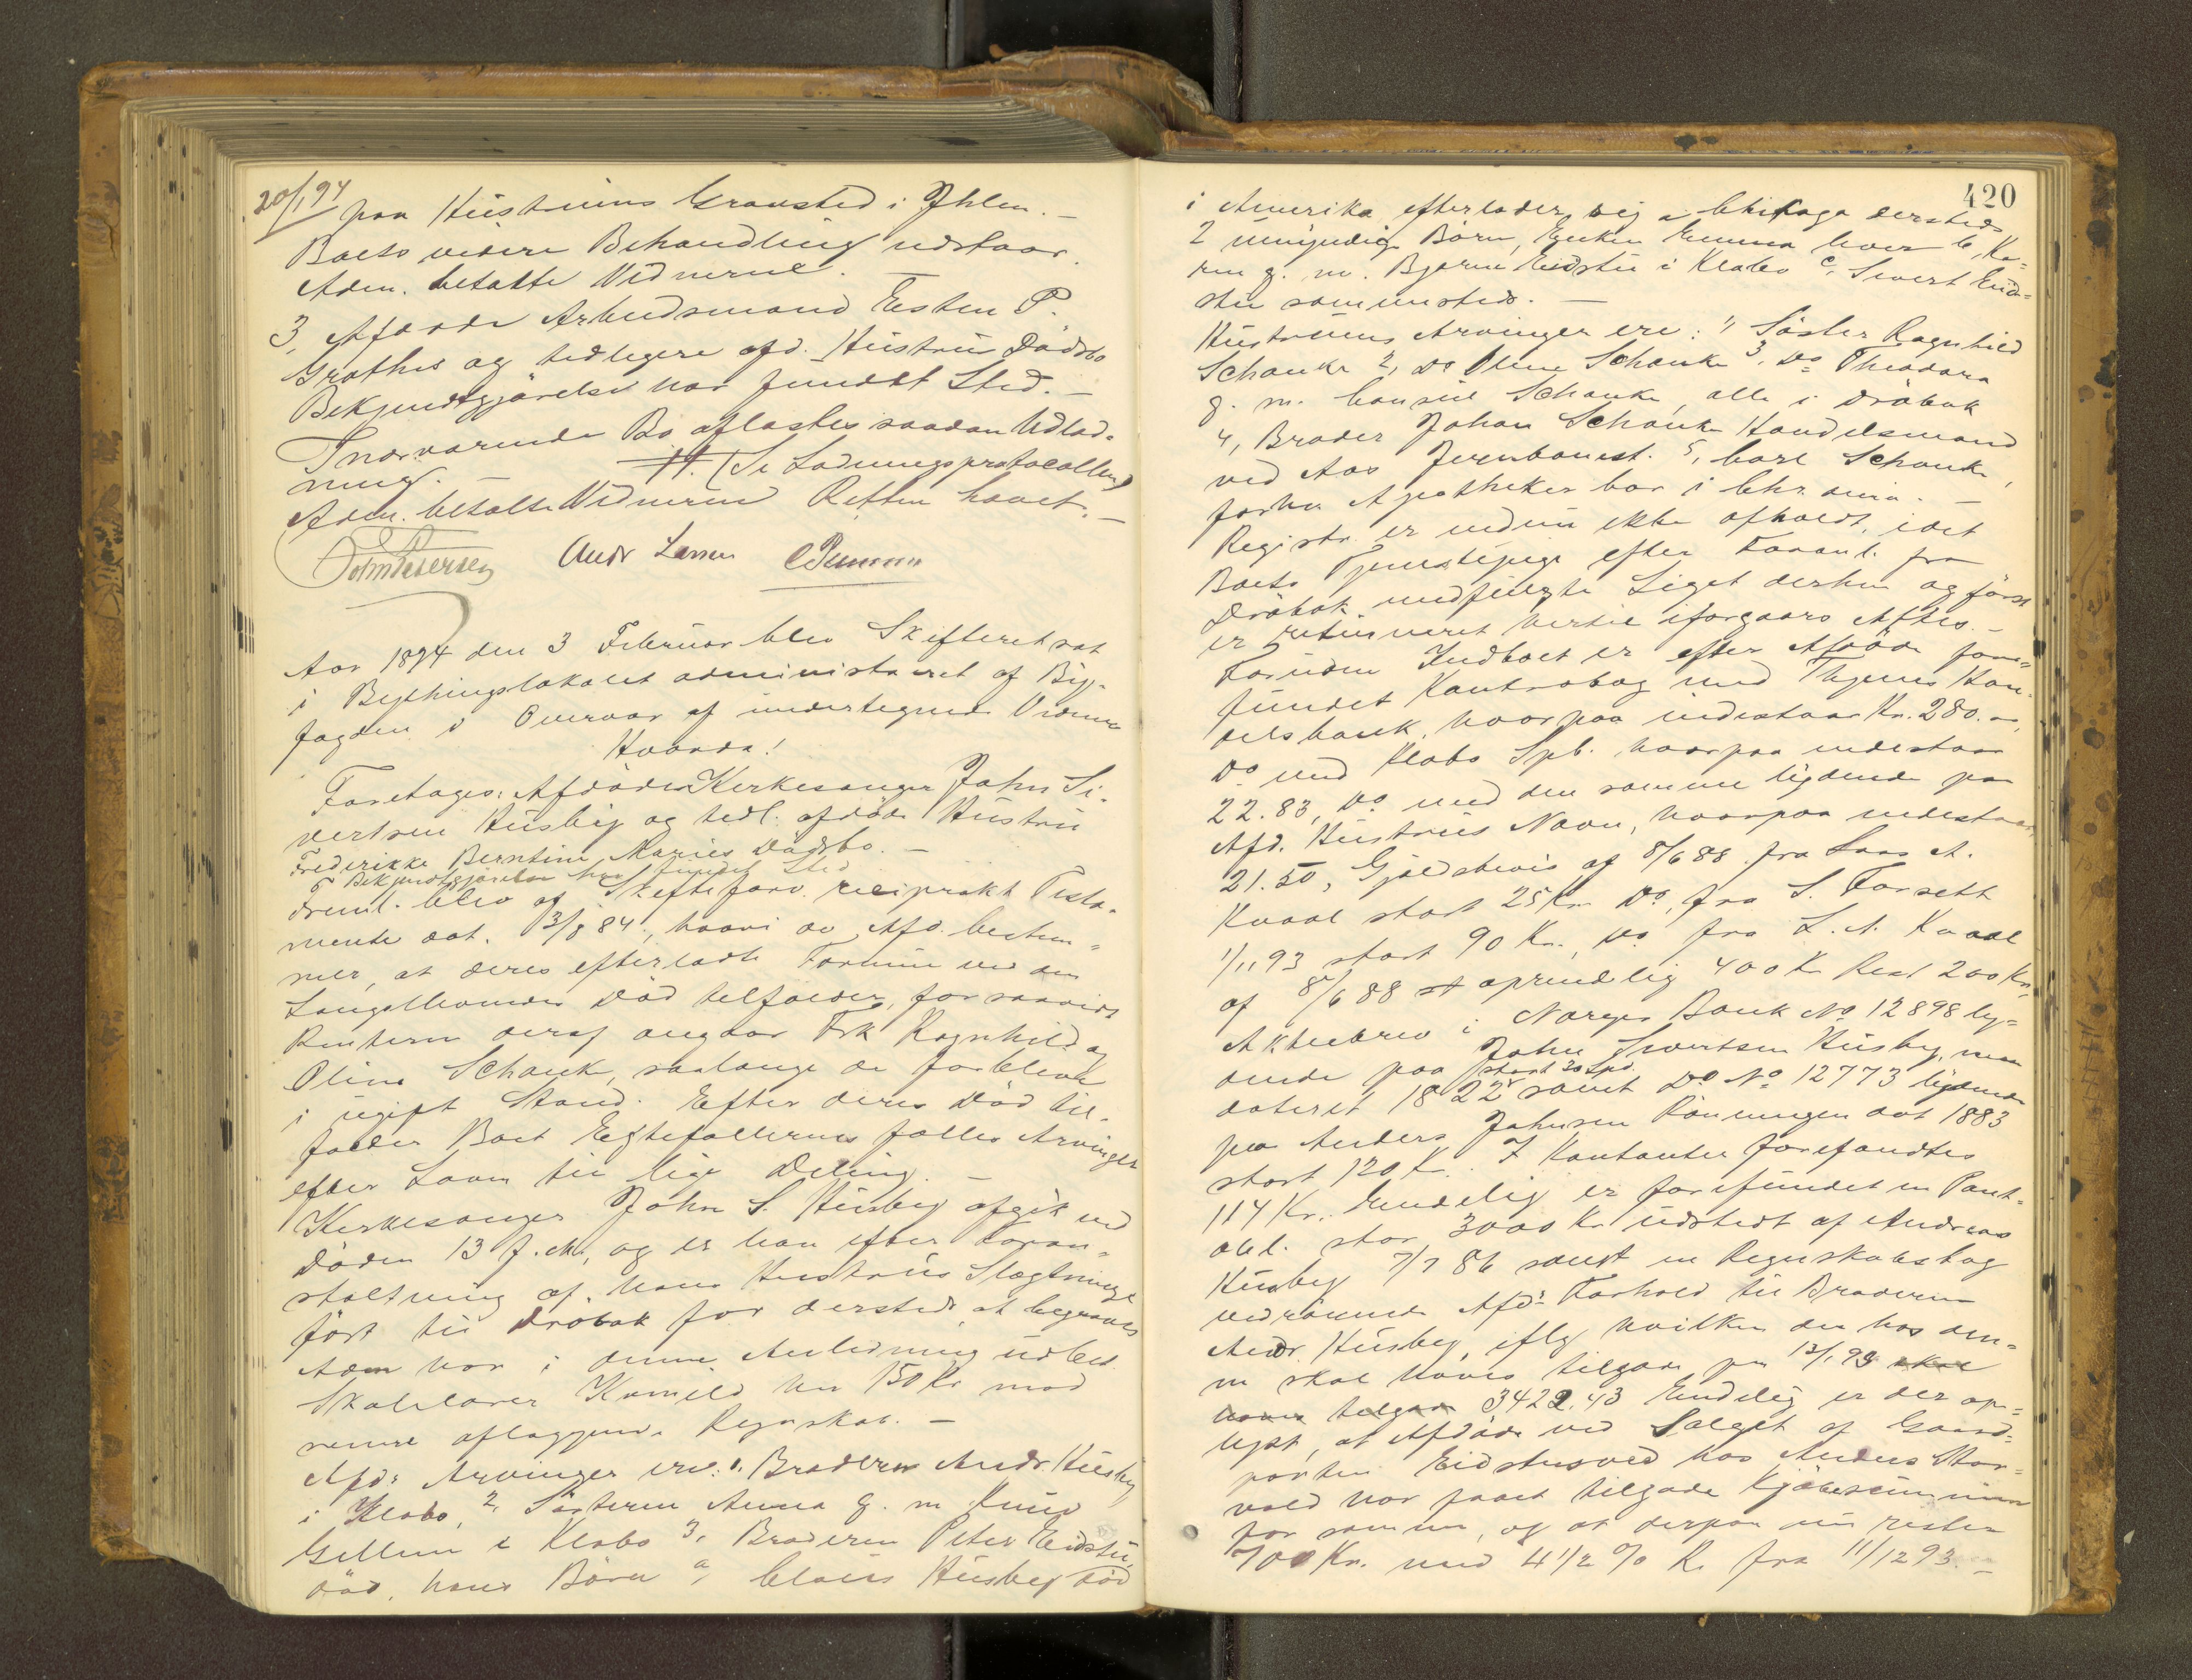 20/1 94
paa Hustruens Gravsted i Ihlen. –
Boets videre Behandling udstaar.
Adm. betalte Vidnerne. –
3, Afdøde Arbeidsmand Esten P.
Grøthes og tidligere afd. Hustrus Dødsbo
Bekjendtgjørelse har fundet Sted. –
I nærværende Bo aflastes saadan Udlod-
ning. (Se Lodningsprotocollen)
Adm. betalte Vidnerne Retten hævet. –
John Petersen Andr Larsen
Aar 1894 den 3 Februar blev Skifteret sat
i Bythingslokalet administreret af By-
fogden i Overvær af undertegnede Vidner
Hvorda!
Foretages: Afdøde Kirkesanger John Si-
vertsen Husby og tidl. afdøde Hustru
Frederikke Berntine Maries Dødsbo. –
Bekjendtgjørelse har fundet Sted
Freml. blev af Skifteforv. reciprokt Testa-
mente dat. 13/8 84, hvori de Afd. bestem-
mer, at deres efterladte Formue ved den
Længstlevendes Død tilfalder, for saavidt
Renterne deraf angaar Frk Ragnhild og
Oline Schanke, saalænge de forbliver
i ugift Stand. Efter deres Død til-
falder Boet Egtefællernes fælles Arvinger
efter Loven til lige Deling. –
Kirkesanger John S. Husby afgik ved
Døden 13 f. M., og er han efter Foran-
staltning af hans Hustrus Slægtninge
ført til Drøbak for dersteds at begraves
Adm har i denne Anledning udbet.
Skolelærer Kvmeld kr 150 Kr mod
senere aflæggende Regnskab. –
Afd: Arvinger ere: 1. Broderen Andr. Husby
i Klæbo, 2, Søsteren Anna g. m Knud
Gellein i Klæbo 3, Broderen Peter Eidstu,
død, hans Børn a, Claus Husby død
420
i Amerika efterlader sig i Chikago dersteds
2 umyndige Børn, Enken Emma lever b, Ka-
ren g. m. Bjarne Eidstu i Klæbo c, Sivert Eid-
stu sammesteds. –
Hustruens Arvinger ere: 1, Søster Ragnhild
Schanke 2, Do Oline Schanke 3, Do Theodora
g. m. Consul Schanke, alle i Drøbak
4, Broder Johan Schanke Handelsmand
ved Aas Jernbanest. 5, Carl Schanke,
forhv Apotheker bor i Chr.ania. –
Registr. er endnu ikke afholdt, idet
Boets Tjenstepige efter Foranl. fra
Drøbak medfulgte Liget derhen og først
er returneret hertil iforgaars Aftes. –
Foruden Indboet er efter Afdøde fore-
fundet Kontrabog med Thjems Han-
delsbank, hvorpaa indestaar Kr. 280. –,
Do med Klæbo Spb. hvorpaa indestaar
22.83, Do med den samme lydende paa
Afd. Hustrus Navn, hvorpaa indestaar
21.50, Gjældsbevis af 8/6 88 fra Lars A.
Kvaal stort 25 Kr Do, fra S. Forsett
1/11 93 stort 90 Kr., Do fra L. A. Kvaal
af 8/6 88 oprindelig 400 Kr Rest 200 Kr,
Aktiebrev i Norges Bank No 12898 ly-
dende paa John Sivertsen Husby,
stort 30 Spd.
dateret 1822 samt Do No 12773 lydende
paa Anders Johnsen Rønningen dat 1883
stort 120 Kr. I Kontanter forefandtes
114 Kr. Endelig er forefundet en Pant-
obl. stor 3000 Kr udstedt af Andreas
Husby 7/7 86 samt en Regnskabsbog
vedrørende Afd: Forhold til Broderen
Andr. Husby, iflg hvilken der hos den-
ne skal haves tilgode pr 13/1 93 skal
haves tilgode 3422.43 Endelig er der op-
lyst, at Afdøde ved Salget af Gaard-
parten Eidstusved hos Anders Stor-
vold har havt tilgode Kjøbesummen
for samme, og at derpaa nu rester
700 Kr. med 4 1/2 % R. fra 11/12 93. –